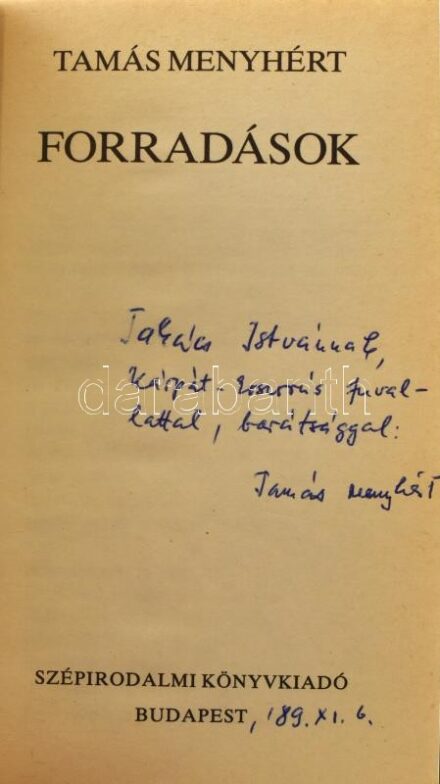 TAMÁS MENYHÉRT
FORRADÁSOK
Takács Istvánnak,
Kárpát-zsurrás fuval-
lattal, barátsággal:
Tamás Menyhért
darabanth
SZÉPIRODALMI KÖNYVKIADÓ
BUDAPEST, '89. XI. 6.